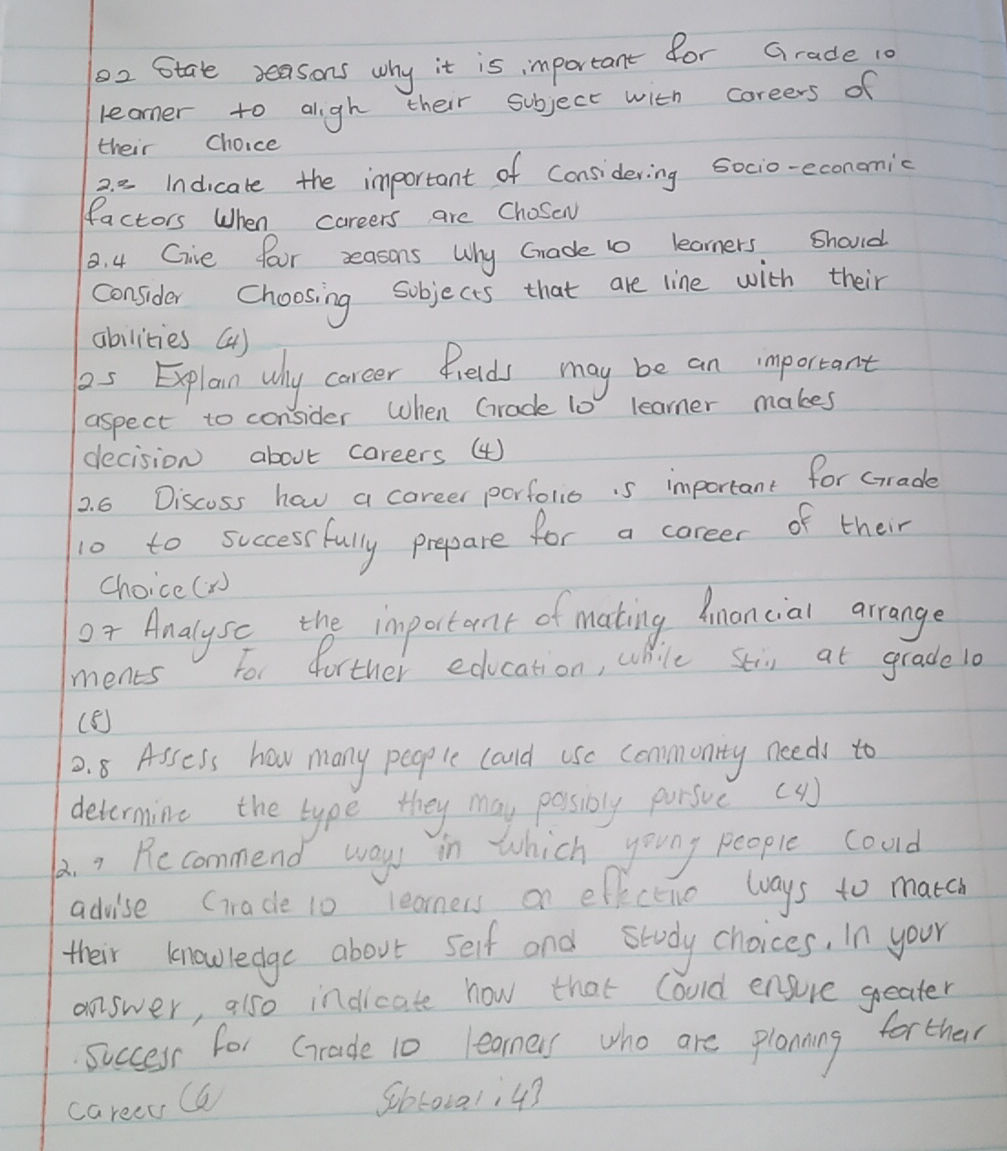 2.2 State reasons why it is important for Grade 10
learner to aligh their subject with careers of
their choice
2.2 Indicate the important of considering socio-economic
factors when careers are chosen
2.4 Give four reasons why Grade 10 learners should
consider choosing subjects that are line with their
abilities (4)
2.5 Explain why career fields may be an important
aspect to consider when Grade 10 learner makes
decision about careers (4)
2.6 Discuss how a career porfolio is important for Grade
10 to successfully prepare for a career of their
choice
2.7 Analyse the important of making financial arrange
ments for further education, while still at grade 10
(8)
2.8 Assess how many people could use community needs to
determine the type they may possibly pursue (4)
2.9 Recommend ways in which young people could
advise Grade 10 learners on effective ways to match
their knowledge about self and study choices. In your
answer, also indicate how that could ensure greater
success for Grade 10 learners who are planning for their
careers Subtotal: 43